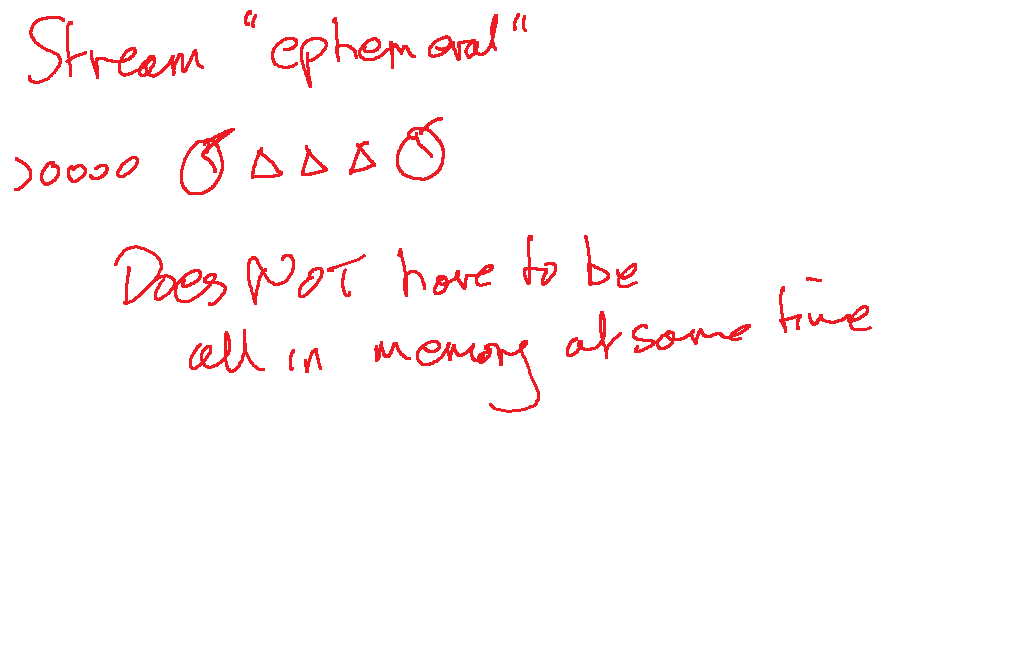 Stream "ephemeral"
Does NOT have to be
all in memory at some time